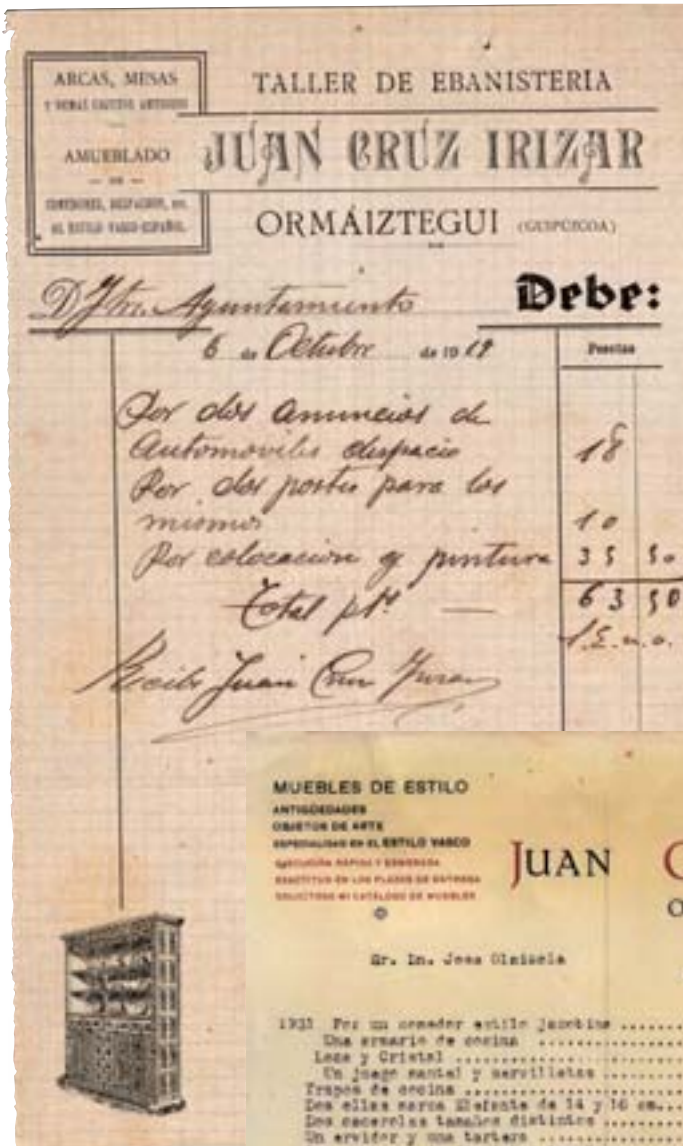 ARCAS, MESAS
Y DEMAS OBJETOS ANTIGUOS
AMUEBLADO
— DE —
COMEDORES, DESPACHOS, etc.
AL ESTILO VASCO-ESPAÑOL.
TALLER DE EBANISTERIA
JUAN CRUZ IRIZAR
ORMÁIZTEGUI (GUIPÚZCOA)
D Iltre. Ayuntamiento Debe:
6 de Octubre de 19 19 Pesetas
Por dos anuncios de
automoviles despacio 18
Por dos postes para los
mismos 10
Por colocacion y pintura 35 50
Total pts — 63 50
Recibi Juan Cruz Irizar
MUEBLES DE ESTILO
ANTIGÜEDADES
OBJETOS DE ARTE
ESPECIALIDAD EN EL ESTILO VASCO
EJECUCIÓN RÁPIDA Y ESMERADA
EXACTITUD EN LOS PLAZOS DE ENTREGA
SOLICITESE MI CATÁLOGO DE MUEBLES
JUAN C
O
Sr. Dn. Jose Olaizola
1931 Por un comedor estilo jacobino ........
Una armario de cocina ........
Loza y Cristal ........
Un juego mantel y servilletas ........
Trapos de cocina ........
Dos ollas marca Elefante de 14 y 16 cm....
Dos cacerolas tamaños distintos ........
Un ervidor y una tartera ........